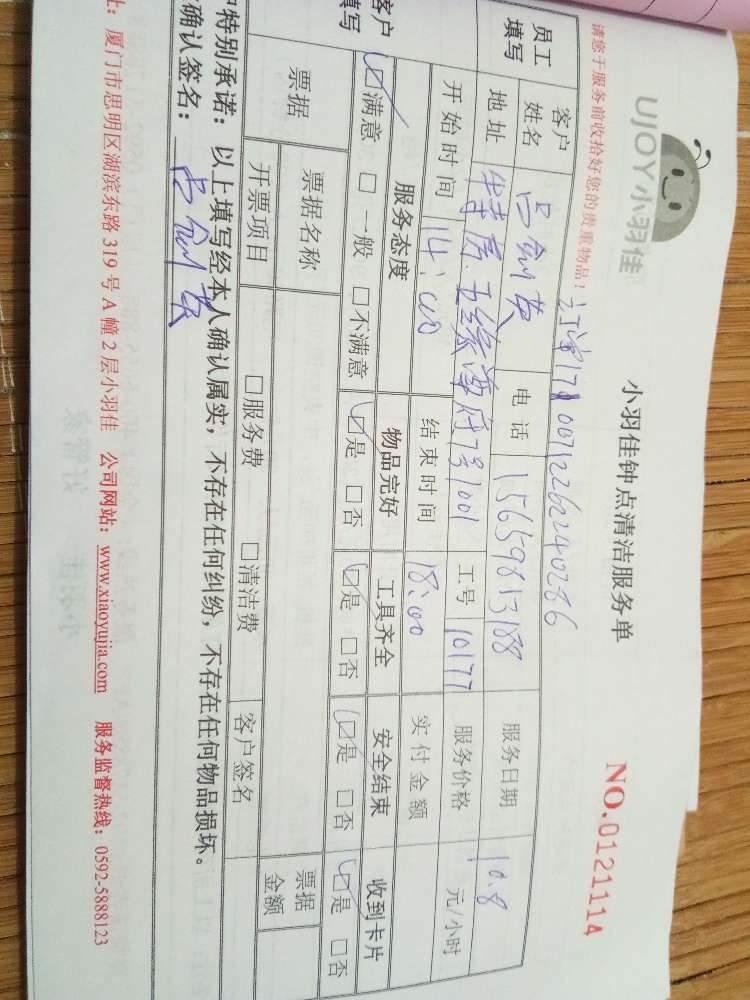 UJOY小羽佳
小羽佳钟点清洁服务单
NO.0121114
请您于服务前收拾好您的贵重物品!
员工填写 客户姓名 电话 15659813188 服务日期 10.8
地址 7号1001 工号 10177 服务价格 元/小时
开始时间 14:00 结束时间 18:00 实付金额
客户填写 服务态度 物品完好 工具齐全 安全结束 收到卡片
☑满意 □一般 □不满意 ☑是 □否 ☑是 □否 ☑是 □否 ☑是 □否
票据 票据名称 票据金额
开票项目 □服务费 □清洁费 客户签名
特别承诺:以上填写经本人确认属实,不存在任何纠纷,不存在任何物品损坏。
确认签名:
址:厦门市思明区湖滨东路 319 号 A 幢 2 层小羽佳 公司网站:www.xiaoyujia.com 服务监督热线:0592-5888123